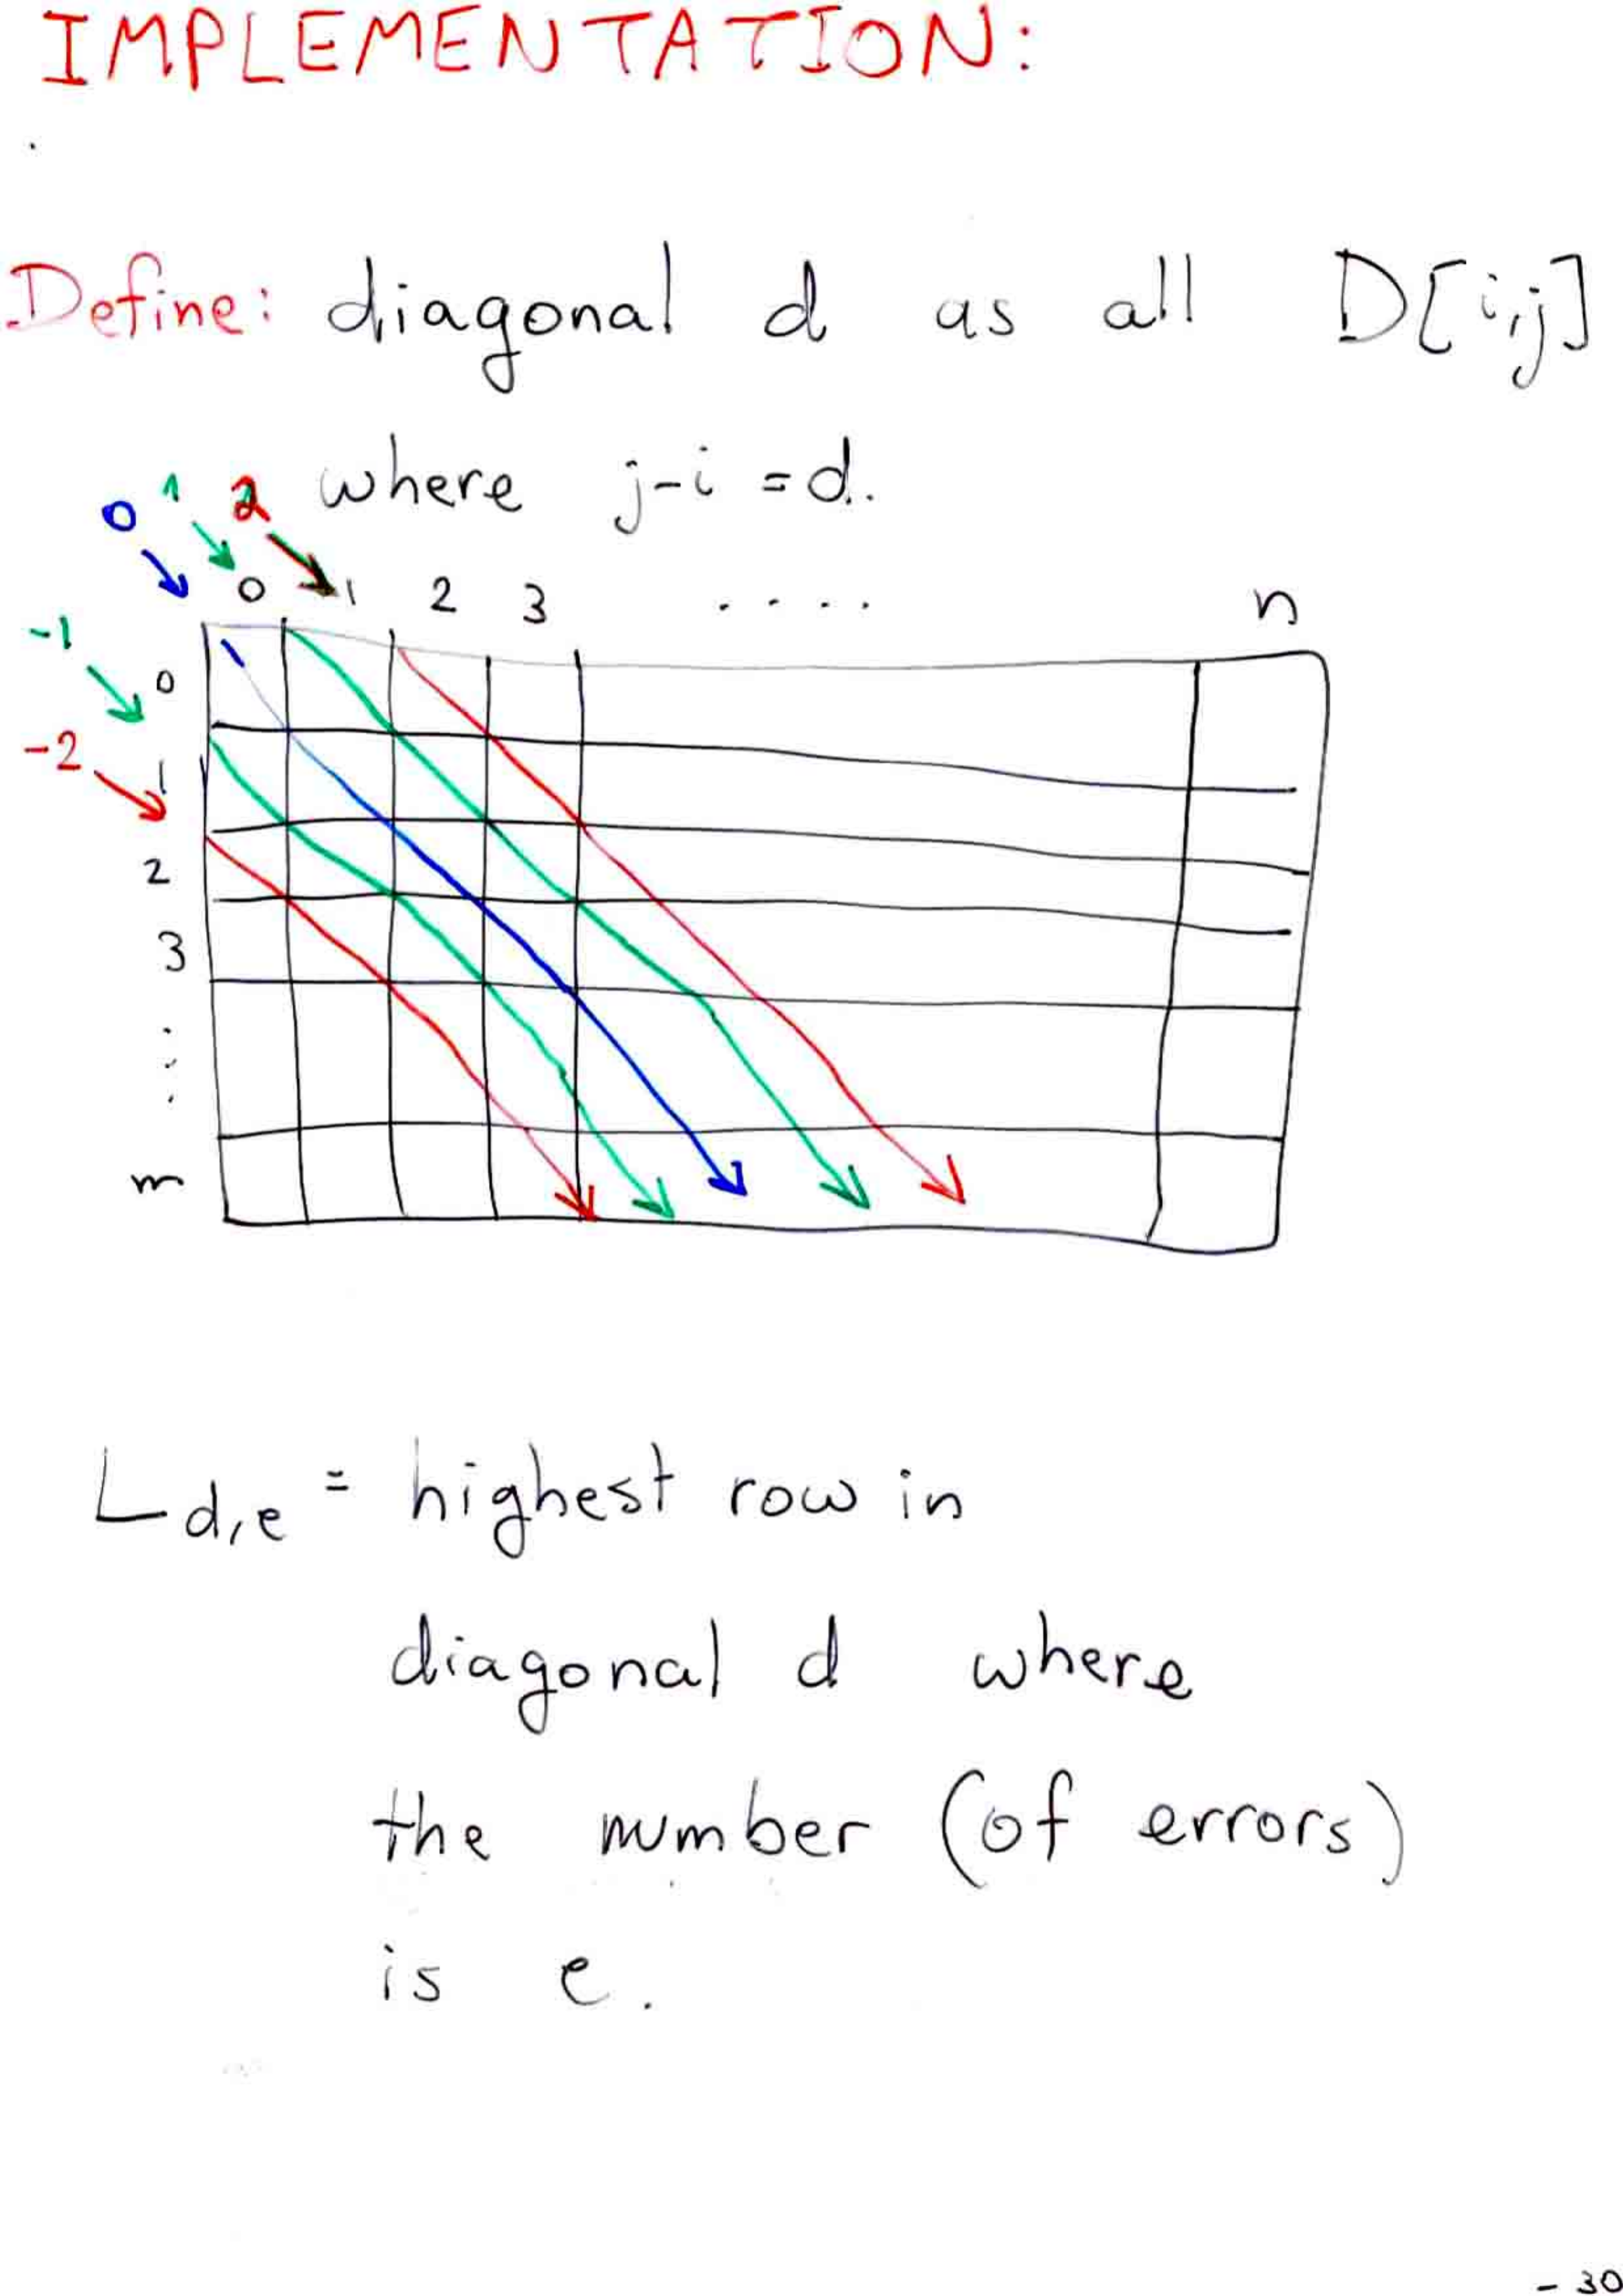 IMPLEMENTATION:
Define: diagonal d as all D[i,j]
where j-i = d.
0 1 2
0 1 2 3 .... n
-1
0
-2
1
2
3
⋮
m
L d,e = highest row in
diagonal d where
the number (of errors)
is e.
- 30